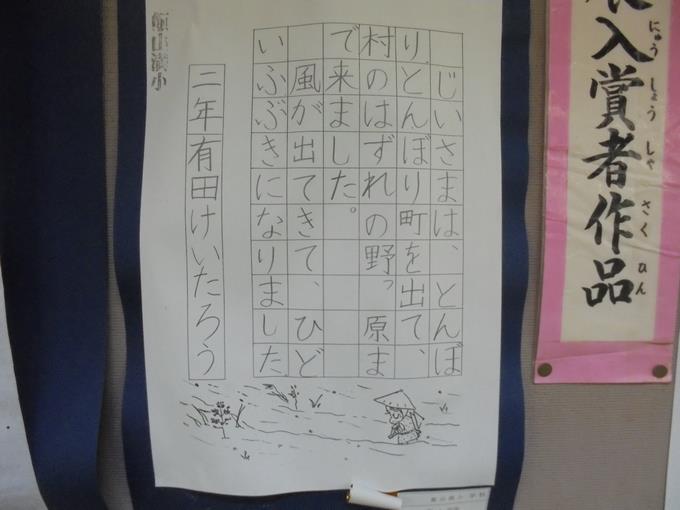 入賞者作品
にゅうしょうしゃさくひん
じいさまは、とんぼ
り、とんぼり町を出て、
村のはずれの野っ原ま
で来ました。
風が出てきて、ひど
いふぶきになりました。
二年有田けいたろう